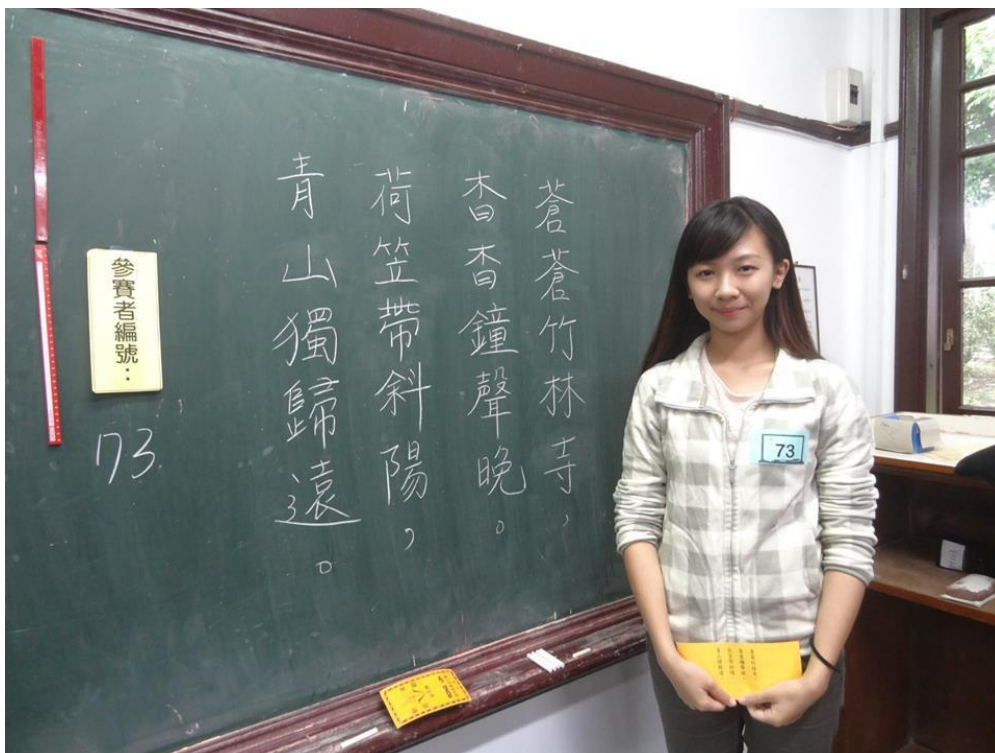 蒼蒼竹林寺，
杳杳鐘聲晚。
荷笠帶斜陽，
青山獨歸遠。
參賽者編號：
73
73